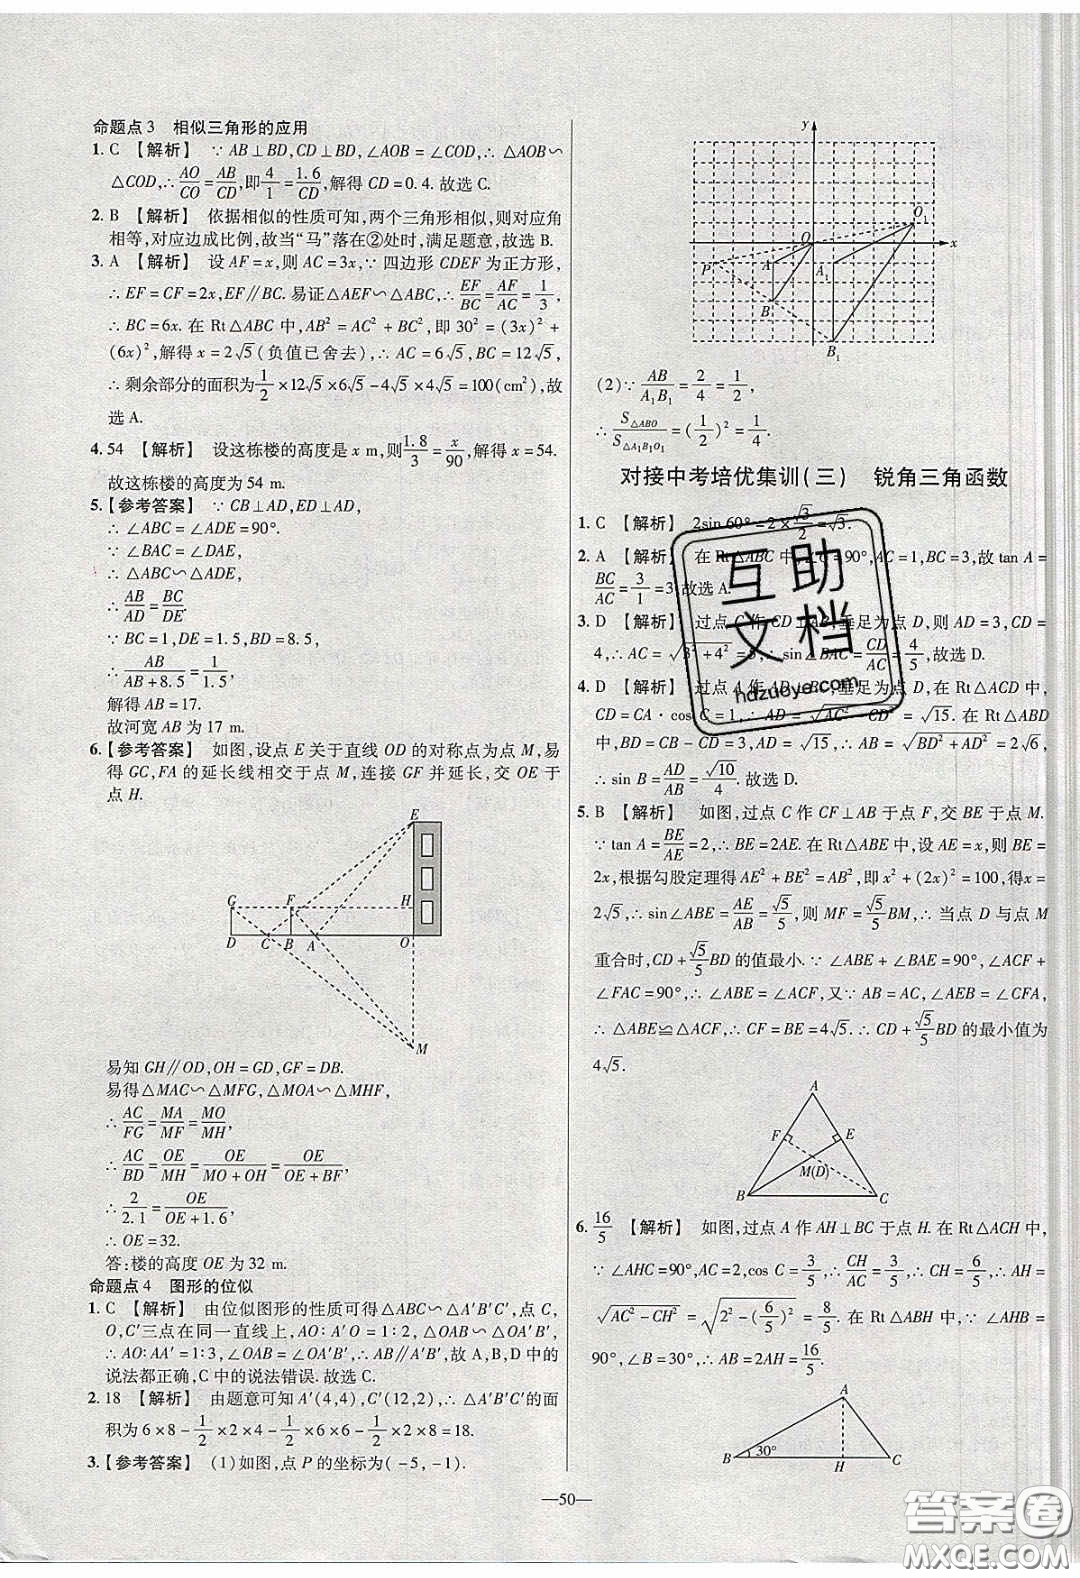 命题点3 相似三角形的应用
1. C 【解析】 ∵AB⊥BD,CD⊥BD,∠AOB=∠COD,∴△AOB∽
△COD,∴AO/CO=AB/CD,即4/1=1.6/CD,解得CD=0.4.故选C.
2. B 【解析】 依据相似的性质可知,两个三角形相似,则对应角
相等,对应边成比例,故当“马”落在②处时,满足题意,故选B.
3. A 【解析】 设AF=x,则AC=3x,∵四边形CDEF为正方形,
∴EF=CF=2x,EF∥BC.易证△AEF∽△ABC,∴EF/BC=AF/AC=1/3,
∴BC=6x.在Rt△ABC中,AB²=AC²+BC²,即30²=(3x)²+
(6x)²,解得x=2√5(负值已舍去),∴AC=6√5,BC=12√5,
∴剩余部分的面积为1/2×12√5×6√5-4√5×4√5=100(cm²),故
选A.
4. 54 【解析】 设这栋楼的高度是x m,则1.8/3=x/90,解得x=54.
故这栋楼的高度为54 m.
5. 【参考答案】 ∵CB⊥AD,ED⊥AD,
∴∠ABC=∠ADE=90°.
∵∠BAC=∠DAE,
∴△ABC∽△ADE,
∴AB/AD=BC/DE.
∵BC=1,DE=1.5,BD=8.5,
∴AB/(AB+8.5)=1/1.5,
解得AB=17.
故河宽AB为17 m.
6. 【参考答案】 如图,设点E关于直线OD的对称点为点M,易
得GC,FA的延长线相交于点M,连接GF并延长,交OE于
点H.
E
G F H
D C B A O
M
易知GH∥OD,OH=GD,GF=DB.
易得△MAC∽△MFG,△MOA∽△MHF,
∴AC/FG=MA/MF=MO/MH,
∴AC/BD=OE/MH=OE/(MO+OH)=OE/(OE+BF),
∴2/2.1=OE/(OE+1.6),
∴OE=32.
答:楼的高度OE为32 m.
命题点4 图形的位似
1. C 【解析】 由位似图形的性质可得△ABC∽△A′B′C′,点C,
O,C′三点在同一直线上,AO:A′O=1:2,△OAB∽△OA′B′,
∴AO:AA′=1:3,∠OAB=∠OA′B′,∴AB∥A′B′,故A,B,D中的
说法都正确,C中的说法错误.故选C.
2. 18 【解析】 由题意可知A′(4,4),C′(12,2),∴△A′B′C′的面
积为6×8-1/2×2×4-1/2×6×6-1/2×2×8=18.
3. 【参考答案】 (1)如图,点P的坐标为(-5,-1).
y
O₁
O
x
P A A₁
B
B₁
(2)∵AB/A₁B₁=2/4=1/2,
∴S△ABO/S△A₁B₁O₁=(1/2)²=1/4.
对接中考培优集训(三) 锐角三角函数
1. C 【解析】 2sin 60°=2×√3/2=√3.
2. A 【解析】 在Rt△ABC中,∠C=90°,AC=1,BC=3,故tan A=
BC/AC=3/1=3,故选A.
3. D 【解析】 过点C作CD⊥AB,垂足为点D,则AD=3,CD=
4,∴AC=√(3²+4²)=5,∴sin∠BAC=CD/AC=4/5,故选D.
4. D 【解析】 过点A作AD⊥BC,垂足为点D,在Rt△ACD中,
CD=CA·cos C=1,∴AD=√(AC²-CD²)=√15.在Rt△ABD
中,BD=CB-CD=3,AD=√15,∴AB=√(BD²+AD²)=2√6,
∴sin B=AD/AB=√10/4.故选D.
5. B 【解析】 如图,过点C作CF⊥AB于点F,交BE于点M.
∵tan A=BE/AE=2,∴BE=2AE.在Rt△ABE中,设AE=x,则BE=
2x,根据勾股定理得AE²+BE²=AB²,即x²+(2x)²=100,得x=
2√5,∴sin∠ABE=AE/AB=√5/5,则MF=√5/5BM,∴当点D与点M
重合时,CD+√5/5BD的值最小.∵∠ABE+∠BAE=90°,∠ACF+
∠FAC=90°,∴∠ABE=∠ACF,又∵AB=AC,∠AEB=∠CFA,
∴△ABE≌△ACF,∴CF=BE=4√5,∴CD+√5/5BD的最小值为
4√5.
A
F E
M(D)
B C
6. 16/5 【解析】 如图,过点A作AH⊥BC于点H.在Rt△ACH中,
∵∠AHC=90°,AC=2,cos C=3/5,∴CH/AC=3/5,∴CH=6/5,∴AH=
√(AC²-CH²)=√(2²-(6/5)²)=8/5.在Rt△ABH中,∵∠AHB=
90°,∠B=30°,∴AB=2AH=16/5.
A
B 30° H C
—50—
互助
文档
hdzuoye.com
答案圈
MXQE.COM